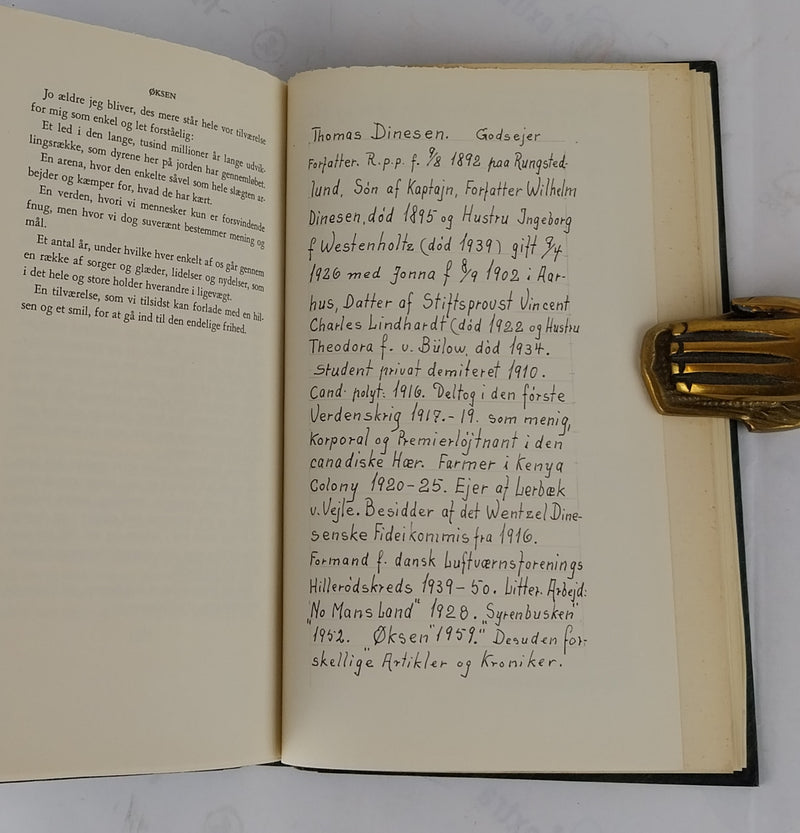 ØKSEN
Jo ældre jeg bliver, des mere står hele vor tilværelse
for mig som enkel og let forståelig:
Et led i den lange, tusind millioner år lange udvik-
lingsrække, som dyrene her på jorden har gennemløbet.
En arena, hvor den enkelte såvel som hele slægten ar-
bejder og kæmper for, hvad de har kært.
En verden, hvori vi mennesker kun er forsvindende
fnug, men hvor vi dog suverænt bestemmer mening og
mål.
Et antal år, under hvilke hver enkelt af os går gennem
en række af sorger og glæder, lidelser og nydelser, som
i det hele og store holder hverandre i ligevægt.
En tilværelse, som vi tilsidst kan forlade med en hil-
sen og et smil, for at gå ind til den endelige frihed.
Thomas Dinesen. Godsejer
Forfatter. R.p.p. f. 9/8 1892 paa Rungsted-
lund, Søn af Kaptajn, Forfatter Wilhelm
Dinesen, död 1895 og Hustru Ingeborg
f Westenholtz (död 1939) gift 9/4
1926 med Jonna f 8/9 1902 i Aar-
hus, Datter af Stiftsprovst Vincent
Charles Lindhardt (död 1922 og Hustru
Theodora f. v. Bülow, död 1934.
Student privat demiteret 1910.
Cand. polyt. 1916. Deltog i den förste
Verdenskrig 1917.-19. som menig,
Korporal og Premierlöjtnant i den
canadiske Hær. Farmer i Kenya
Colony 1920-25. Ejer af Lerbæk
v. Vejle. Besidder af det Wentzel Dine-
senske Fideikommis fra 1916.
Formand f. dansk Luftværnsforenings
Hillerödskreds 1939-50. Litter. Arbejd:
"No Mans Land" 1928. "Syrenbusken"
1952. "Øksen" 1959. Desuden for-
skellige Artikler og Kroniker.